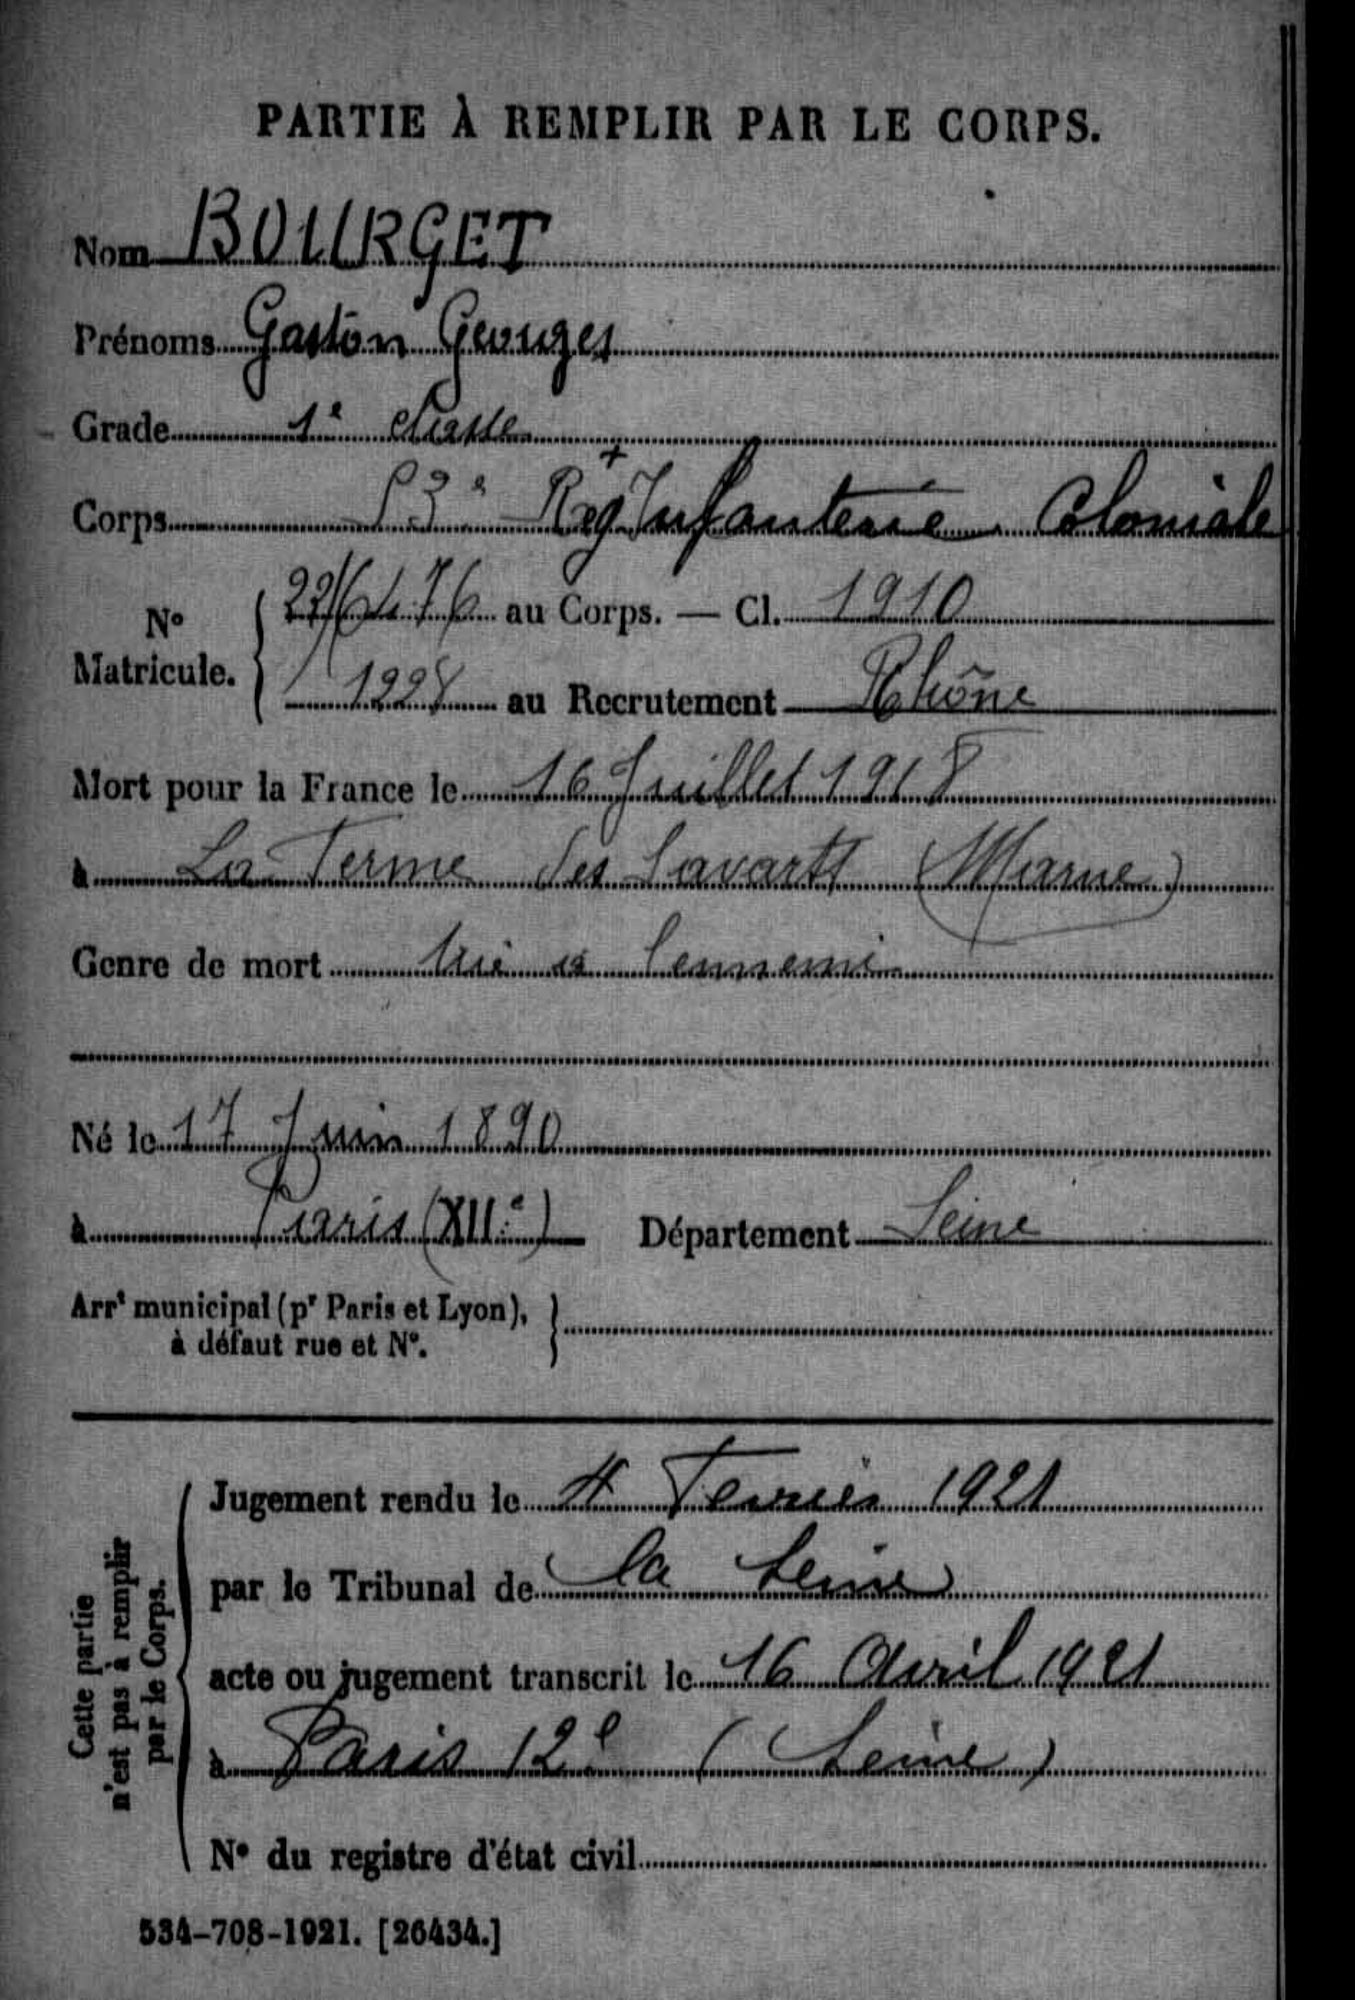 PARTIE À REMPLIR PAR LE CORPS.
Nom BOURGET
Prénoms Gaston Georges
Grade 1e classe
Corps 53e Régt Infanterie Coloniale
No Matricule. au Corps. — Cl. 1910
1228 au Recrutement Rhône
Mort pour la France le 16 Juillet 1918
à La Ferme des Savarts (Marne)
Genre de mort tué à lennemi
Né le 17 Juin 1890
à Paris (XIIe) Département Seine
Arrt municipal (pr Paris et Lyon),
à défaut rue et No.
Cette partie
n'est pas à remplir
par le Corps.
Jugement rendu le 4 Fevrier 1921
par le Tribunal de la Seine
acte ou jugement transcrit le 16 Avril 1921
à Paris 12e (Seine)
No du registre d'état civil
534-708-1921. [26434.]